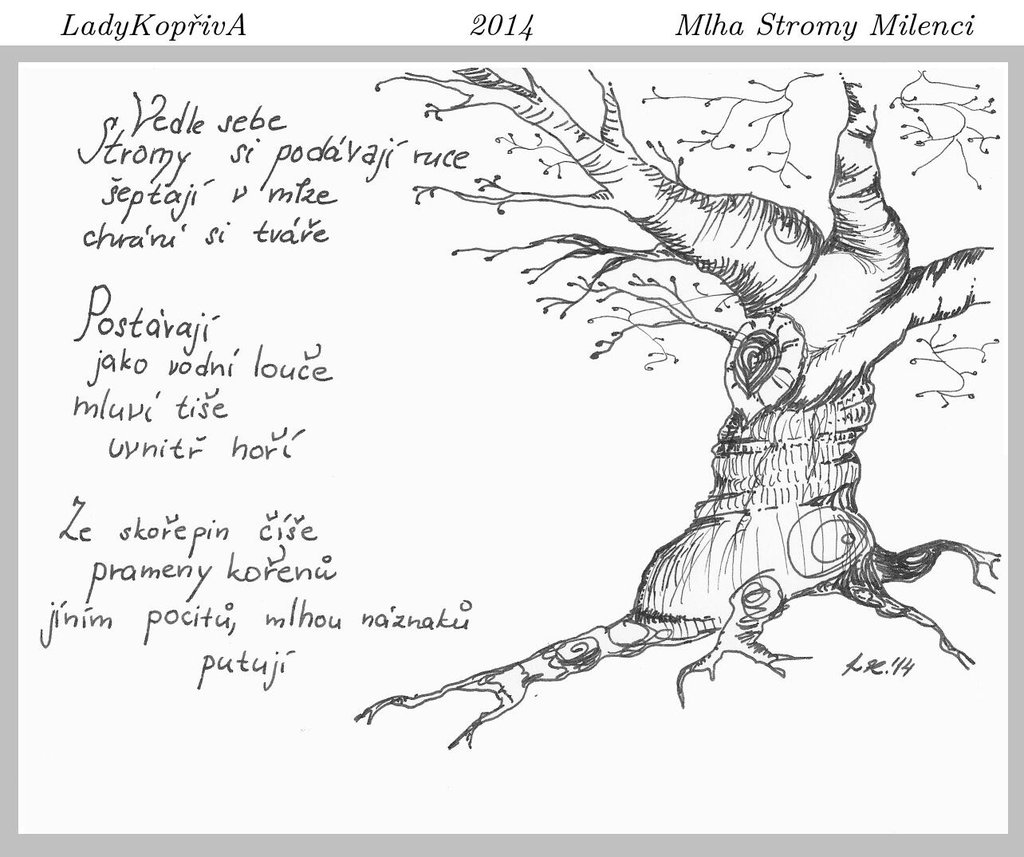 LadyKopřivA 2014 Mlha Stromy Milenci
Vedle sebe
Stromy si podávají ruce
šeptají v mlze
chrání si tváře
Postávají
jako vodní louče
mluví tiše
uvnitř hoří
Ze skořepin číše
prameny kořenů
jíním pocitů, mlhou náznaků
putují
LK.'14